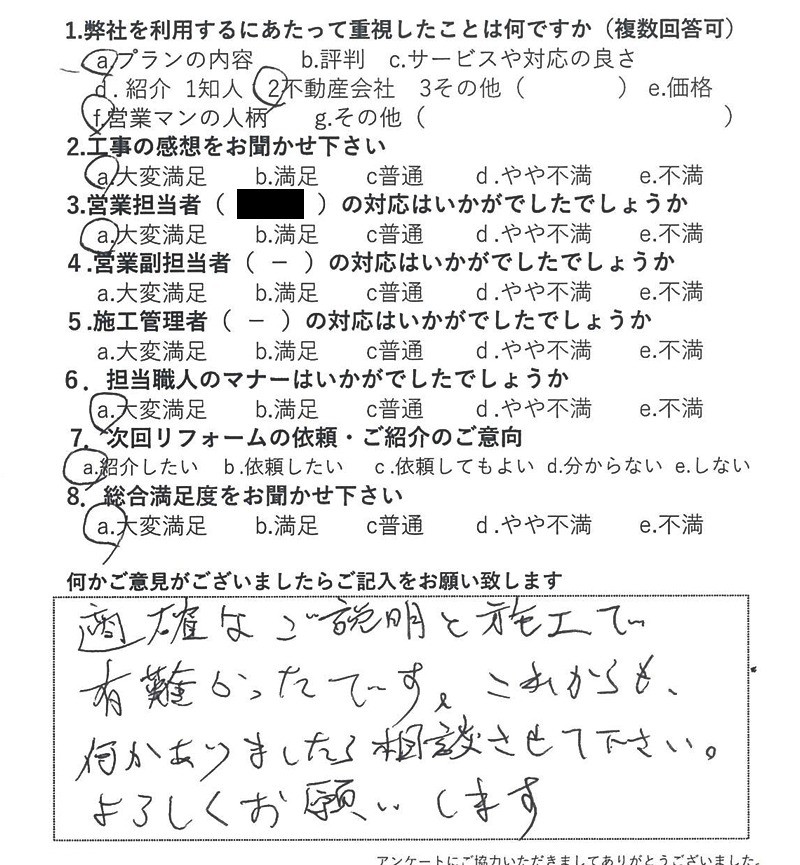 1.弊社を利用するにあたって重視したことは何ですか（複数回答可）
a.プランの内容 b.評判 c.サービスや対応の良さ
d.紹介 1知人 2不動産会社 3その他（ ） e.価格
f.営業マンの人柄 g.その他（ ）
2.工事の感想をお聞かせ下さい
a.大変満足 b.満足 c普通 d.やや不満 e.不満
3.営業担当者（ ）の対応はいかがでしたでしょうか
a.大変満足 b.満足 c普通 d.やや不満 e.不満
4.営業副担当者（ － ）の対応はいかがでしたでしょうか
a.大変満足 b.満足 c普通 d.やや不満 e.不満
5.施工管理者（ － ）の対応はいかがでしたでしょうか
a.大変満足 b.満足 c普通 d.やや不満 e.不満
6．担当職人のマナーはいかがでしたでしょうか
a.大変満足 b.満足 c普通 d.やや不満 e.不満
7．次回リフォームの依頼・ご紹介のご意向
a.紹介したい b.依頼したい c.依頼してもよい d.分からない e.しない
8．総合満足度をお聞かせ下さい
a.大変満足 b.満足 c普通 d.やや不満 e.不満
何かご意見がございましたらご記入をお願い致します
適確なご説明と施工で
有難かったです。これからも、
何かありましたら相談させて下さい。
よろしくお願いします
アンケートにご協力いただきましてありがとうございました。